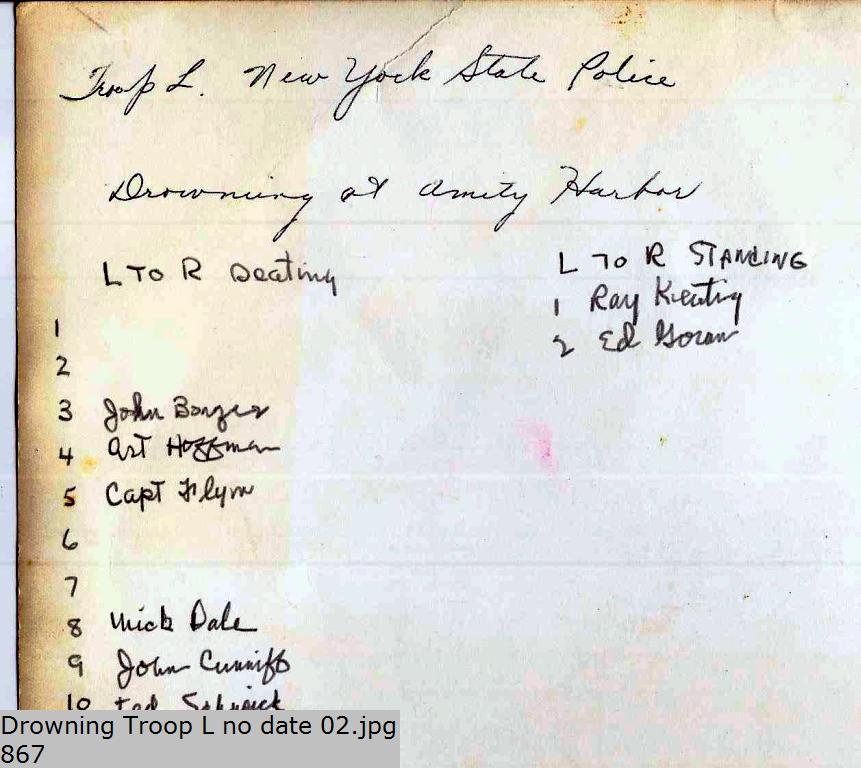 Troop L. New York State Police
Drowning at Amity Harbor
L TO R Seating
1
2
3 John Bonges
4 Art Hoffman
5 Capt Flynn
6
7
8 Mick Dale
9 John Cunniff
10 Ted
L TO R STANDING
1 Ray Keating
2 Ed Goran
Drowning Troop L no date 02.jpg
867